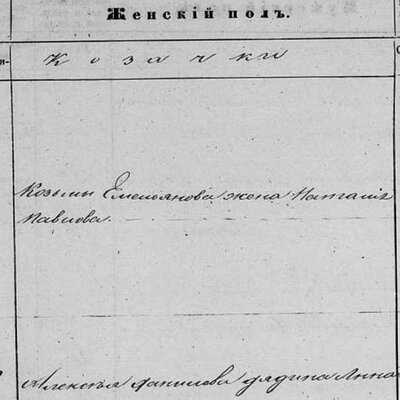 Женскій полъ.
Козачки
Козьмы Емельянова жена Наталія
Павлова.
Алексѣя Данилова дядина Анна